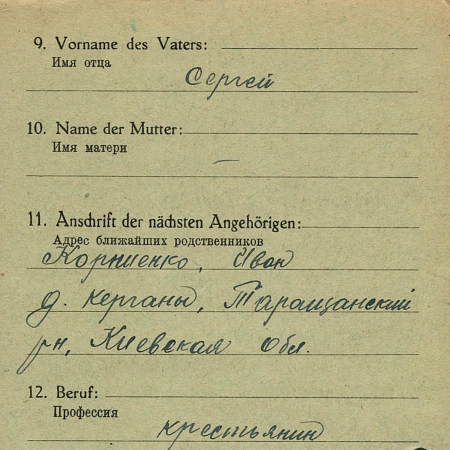 9. Vorname des Vaters:
Имя отца
Сергей
10. Name der Mutter:
Имя матери
—
11. Anschrift der nächsten Angehörigen:
Адрес ближайших родственников
Корниенко, Иван
д. Керганы, Таращанский
рн, Киевская обл.
12. Beruf:
Профессия
крестьянин